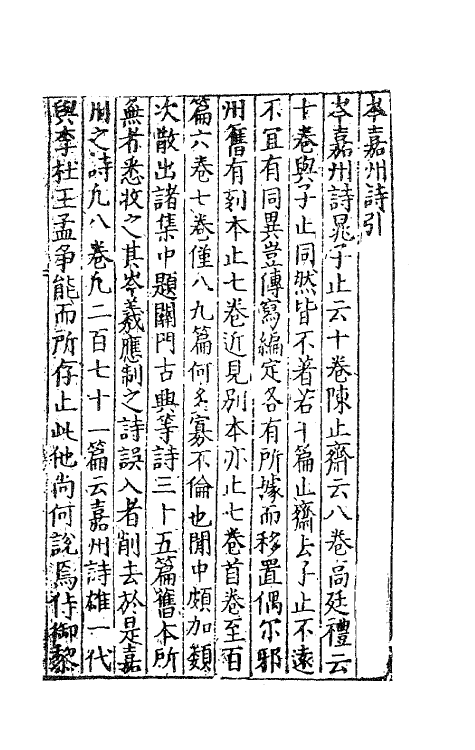 岑嘉州詩引
岑嘉州詩晁子止云十卷陳止齋云八卷高廷禮云
十卷與子止同然皆不著若干篇止齋去子止不遠
不宜有同異豈傳寫編定各有所據而移置偶尒邪
州舊有刻本止七卷近見別本亦止七卷首卷至百
篇六卷七卷僅八九篇何多寡不倫也閒中頗加類
次散出諸集中題關門古典等詩三十五篇舊本所
無者悉收之其岑羲應制之詩誤入者削去於是嘉
州之詩凢八卷凢二百七十一篇云嘉州詩雄一代
與李杜王孟爭能而所存止此他尚何說焉侍御黎